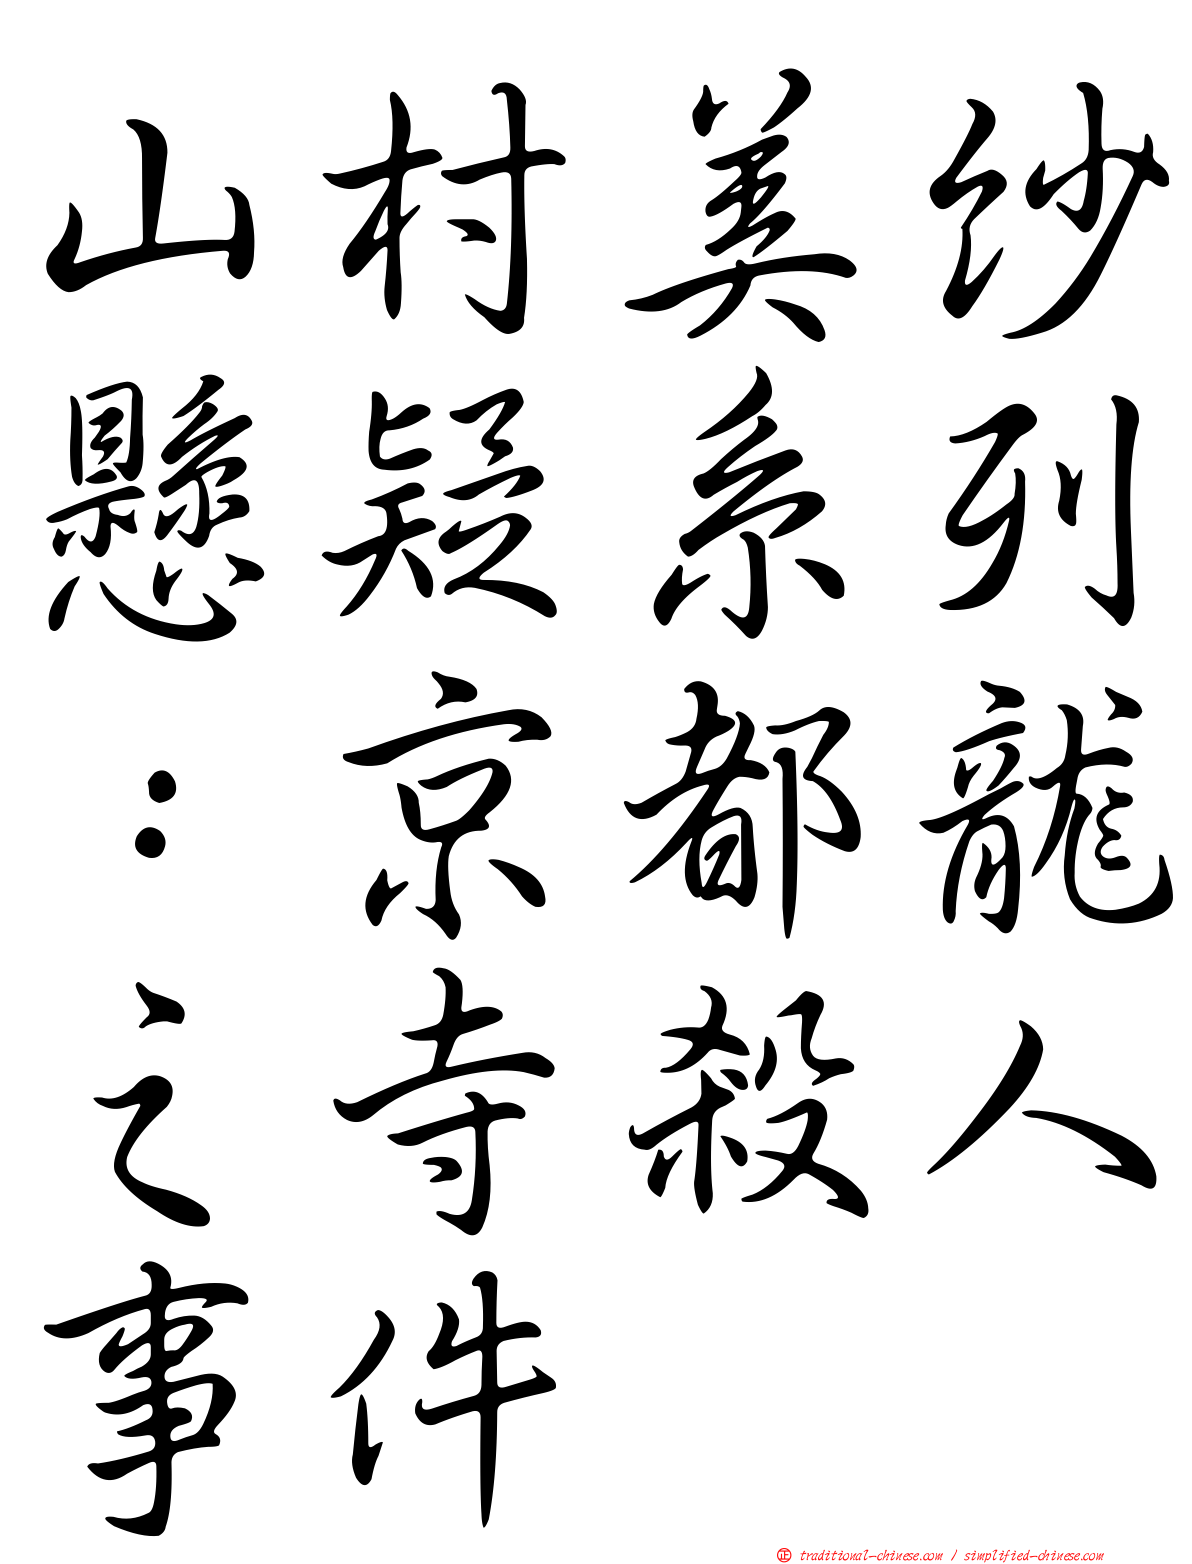 山村美紗
懸疑系列
：京都龍
之寺殺人
事件
正 traditional-chinese.com / simplified-chinese.com